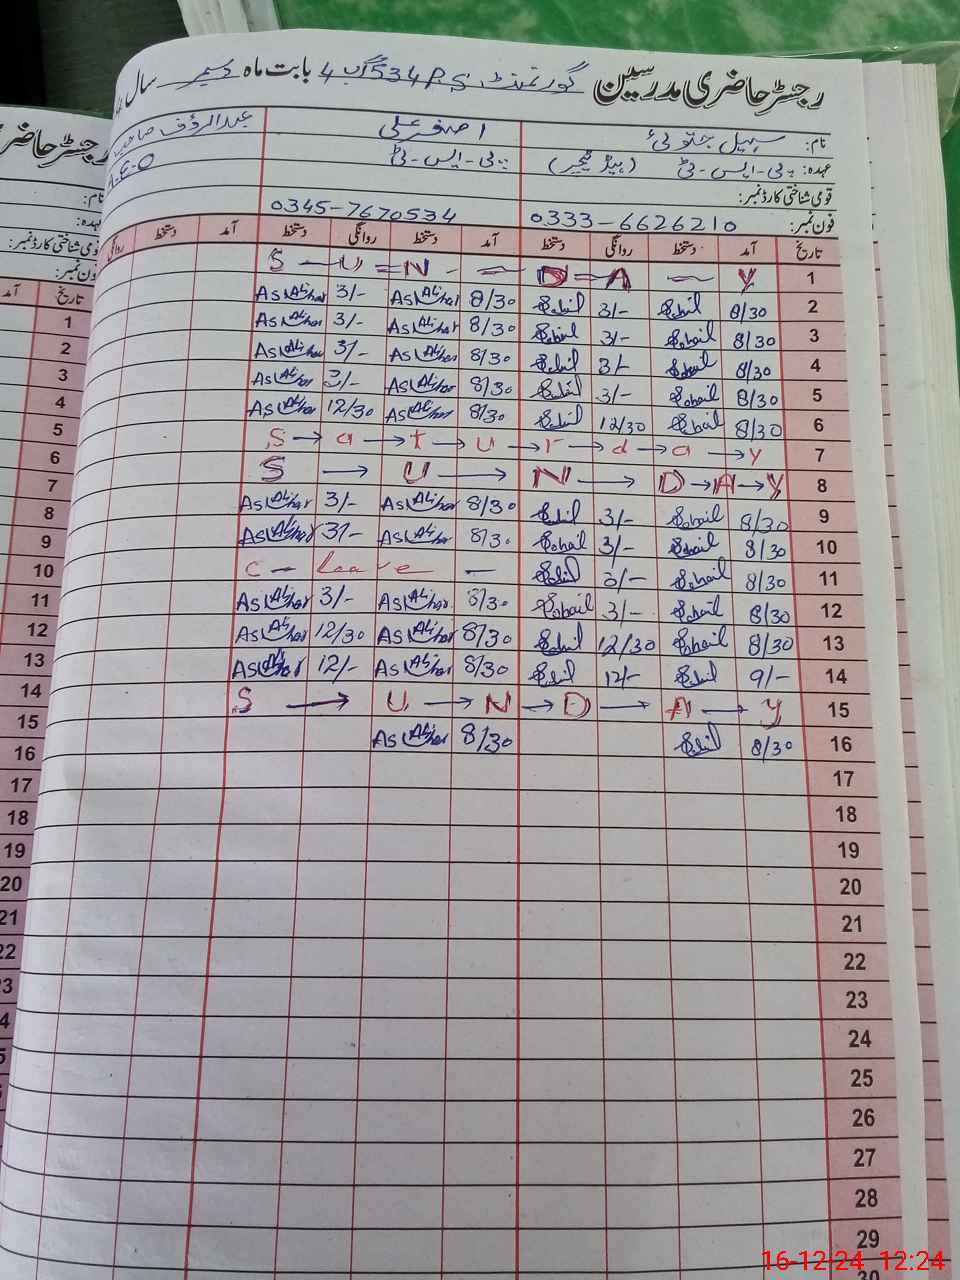 رجسٹر حاضری مدرسین گورنمنٹ P.S 534 گ ب 4 بابت ماہ دسمبر سال
نام: سہیل جتوئی اصغر علی عبدالرؤف صاحب
عہدہ: پی-ایس-ٹی (ہیڈ ٹیچر) پی-ایس-ٹی A-E-O
قومی شناختی کارڈ نمبر:
فون نمبر: 0333-6626210 0345-7670534
تاریخ آمد دستخط روانگی دستخط آمد دستخط روانگی دستخط آمد دستخط دستخط روانگی
1 S - U = N - D = A - Y
2 8/30 Sohail 3/- Sohail 8/30 As Ali har 3/- As Ali har
3 8/30 Sohail 3/- Sohail 8/30 As Ali har 3/- As Ali har
4 8/30 Sohail 3/- Sohail 8/30 As Ali har 3/- As Ali har
5 8/30 Sohail 3/- Sohail 8/30 As Ali har 3/- As Ali har
6 8/30 Sohail 12/30 Sohail 8/30 As Ali har 12/30 As Ali har
7 S → a → t → u → r → d → a → y
8 S → U → N → D → A → Y
9 8/30 Sohail 3/- Sohail 8/30 As Ali har 3/- As Ali har
10 8/30 Sohail 3/- Sohail 8/30 As Ali har 3/- As Ali har
11 8/30 Sohail 3/- Sohail C - Leave -
12 8/30 Sohail 3/- Sohail 8/30 As Ali har 3/- As Ali har
13 8/30 Sohail 12/30 Sohail 8/30 As Ali har 12/30 As Ali har
14 9/- Sohail 12/- Sohail 8/30 As Ali har 12/- As Ali har
15 S → U → N → D → A → Y
16 8/30 Sohail 8/30 As Ali har
17
18
19
20
21
22
23
24
25
26
27
28
29
30
رجسٹر حاضری
نام:
عہدہ:
قومی شناختی کارڈ نمبر:
فون نمبر:
تاریخ آمد
1
2
3
4
5
6
7
8
9
10
11
12
13
14
15
16
17
18
19
20
21
22
16-12-24 12:24